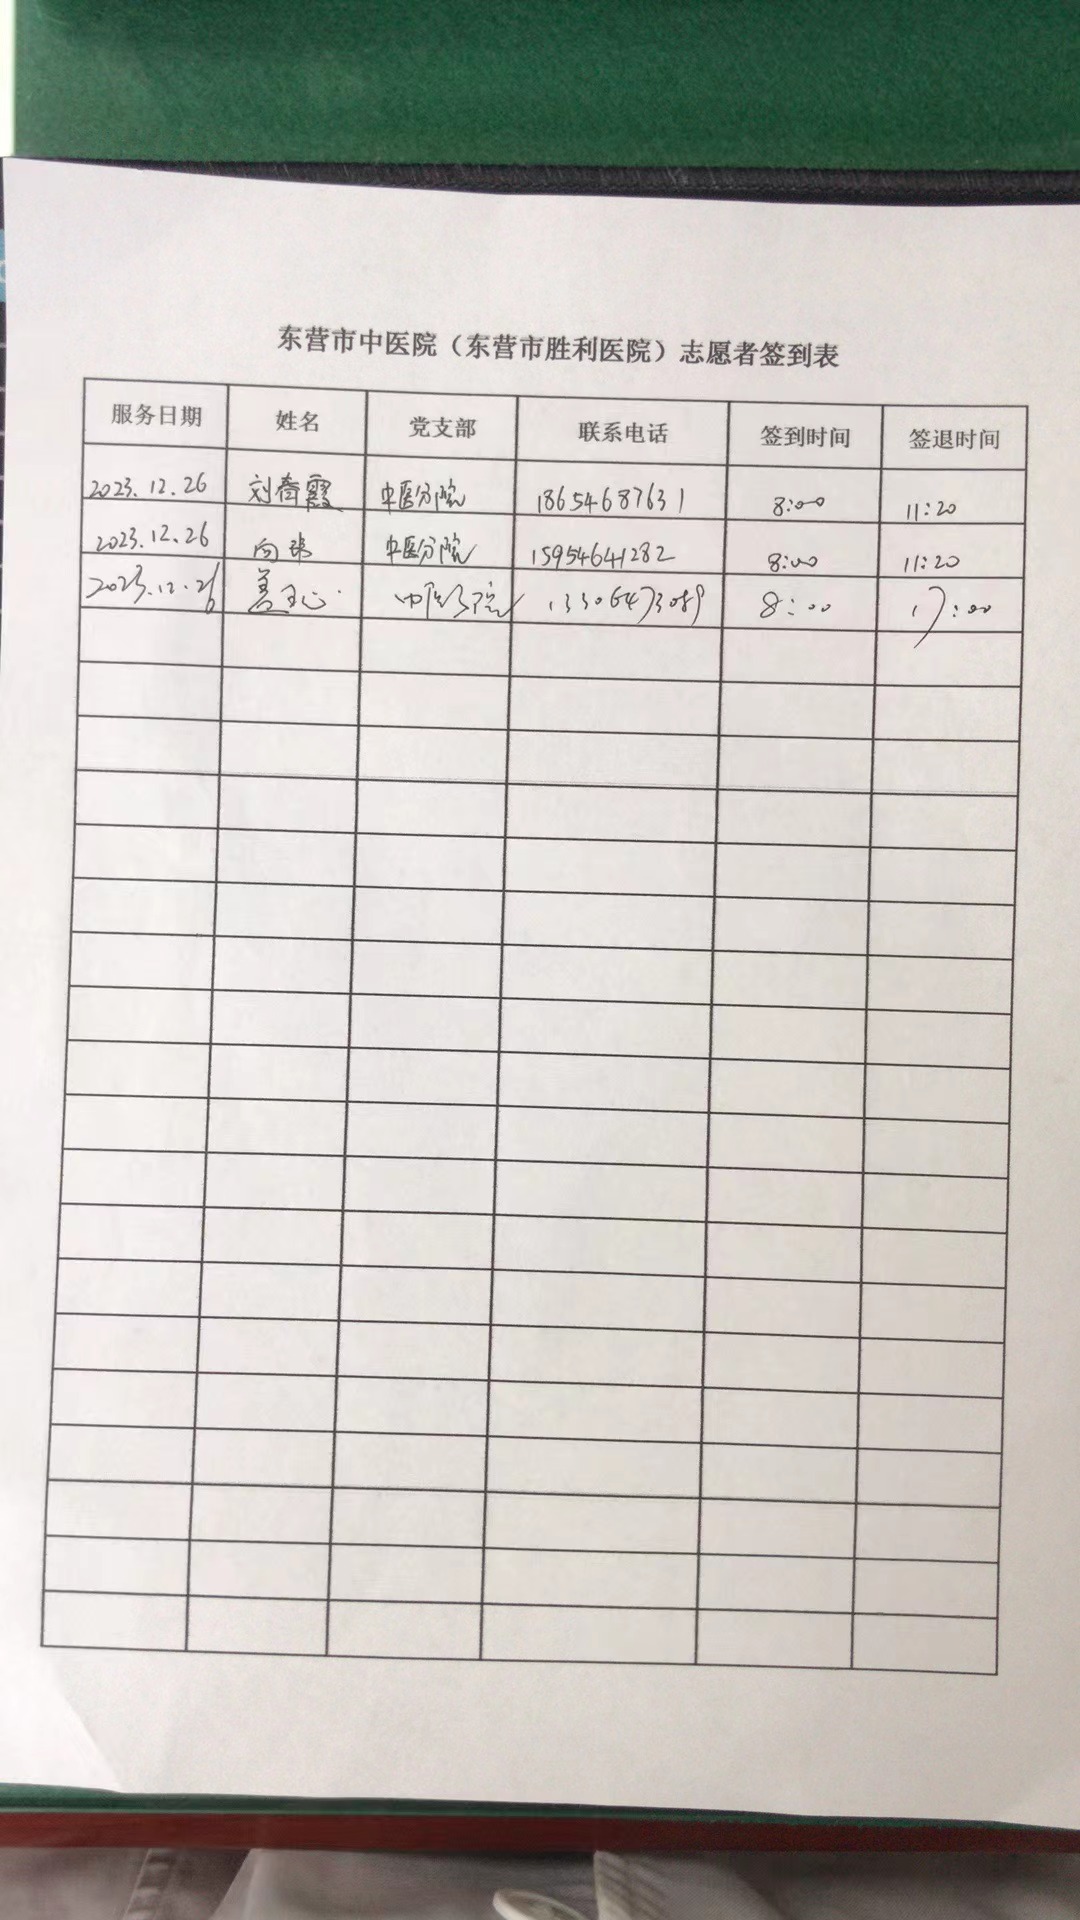 东营市中医院（东营市胜利医院）志愿者签到表
服务日期 姓名 党支部 联系电话 签到时间 签退时间
2023.12.26 刘春霞 中医分院 18654687631 8:00 11:20
2023.12.26 向 中医分院 15954641282 8:00 11:20
2023.12.26 中医分院 13306473089 8:00 17:00